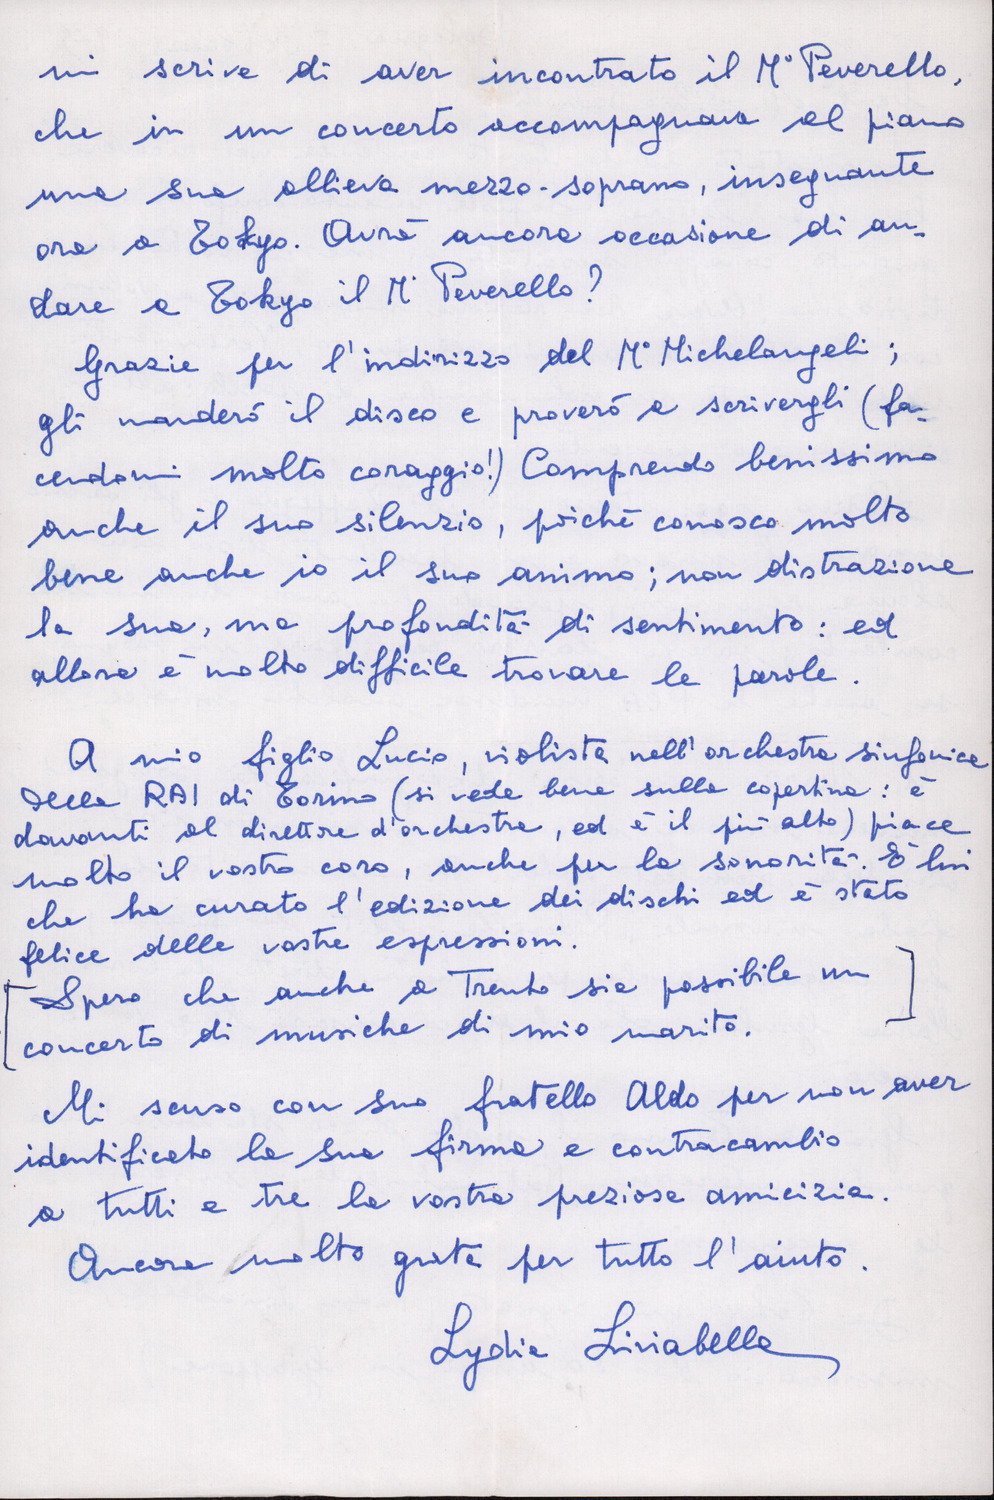 mi scrive di aver incontrato il M° Peverello,
che in un concerto accompagnava al piano
una sua allieva mezzo-soprano, insegnante
ora a Tokyo. Avrà ancora occasione di an-
dare a Tokyo il M° Peverello?
Grazie per l'indirizzo del M° Michelangeli;
gli manderò il disco e proverò a scrivergli (fa-
cendomi molto coraggio!) Comprendo benissimo
anche il suo silenzio, poichè conosco molto
bene anche io il suo animo; non distrazione
la sua, ma profondità di sentimento: ed
allora è molto difficile trovare le parole.
A mio figlio Lucio, violista nell'orchestra sinfonica
della RAI di Torino (si vede bene sulla copertina: è
davanti al direttore d'orchestra, ed è il più alto) piace
molto il vostro coro, anche per la sonorità. È lui
che ha curato l'edizione dei dischi ed è stato
felice delle vostre espressioni.
[Spero che anche a Trento sia possibile un
concerto di musiche di mio marito.]
Mi scuso con suo fratello Aldo per non aver
identificato la sua firma e contraccambio
a tutti e tre la vostra preziosa amicizia.
Ancora molto grata per tutto l'aiuto.
Lydia Liviabella